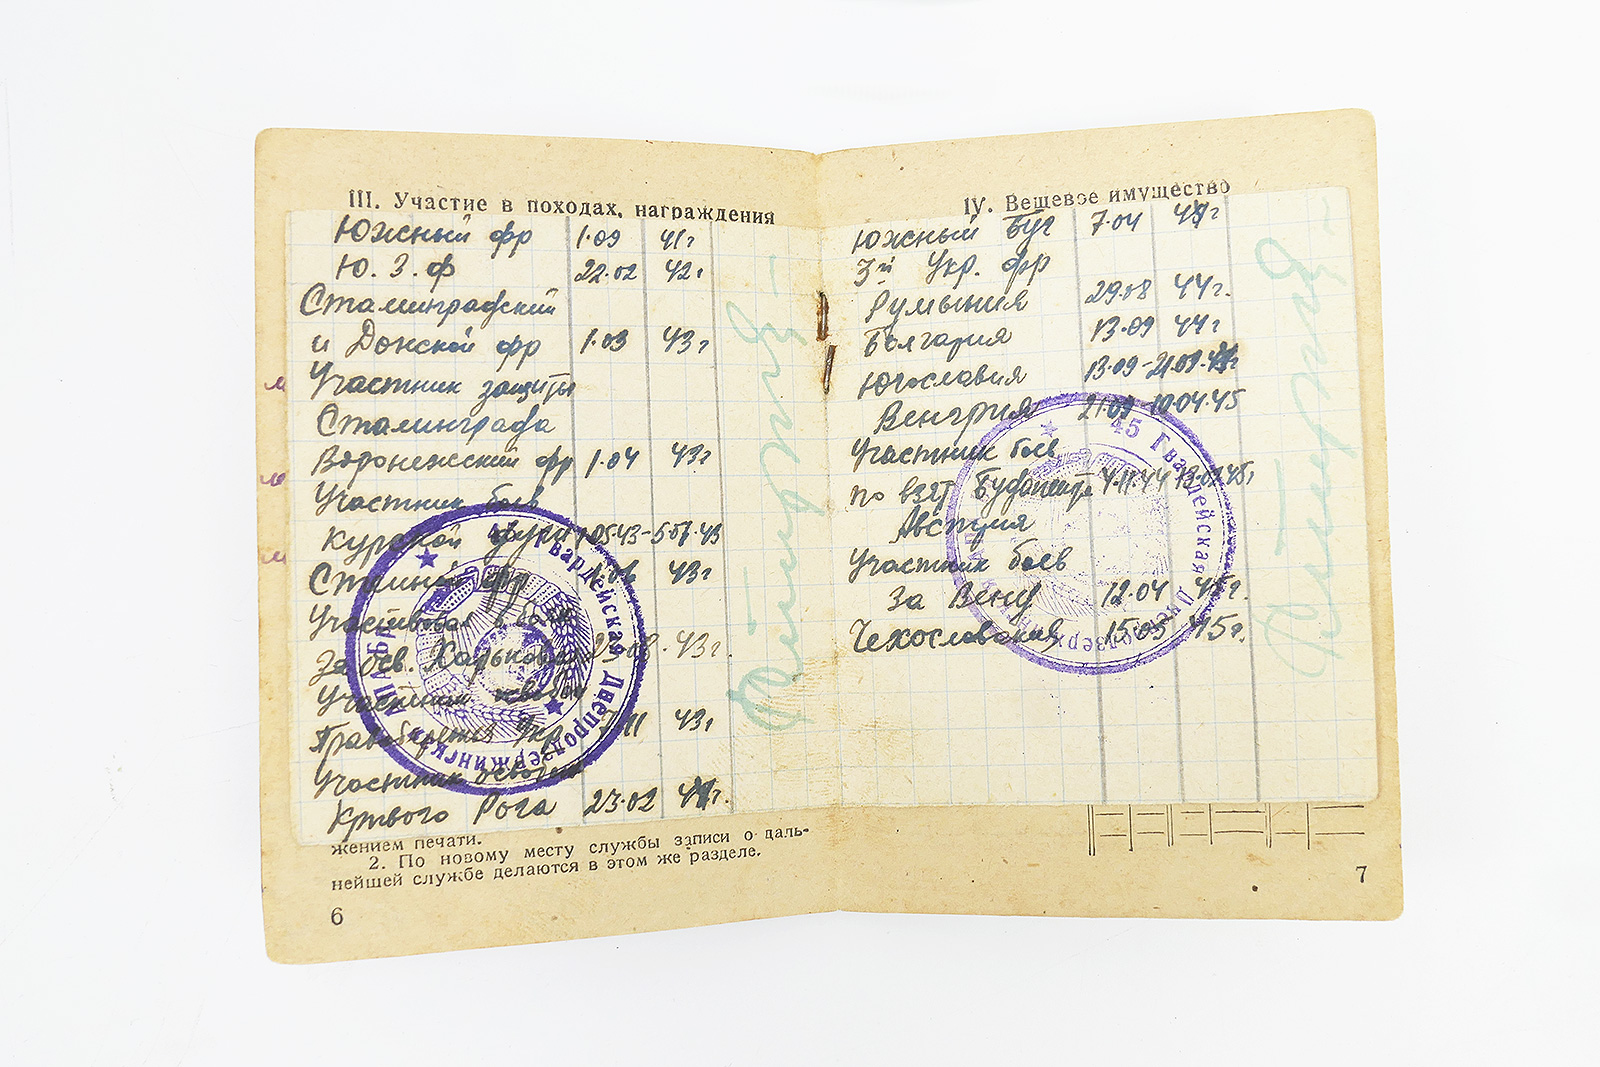 III. Участие в походах, награждения
Южный фр 1.09 41г
Ю. З. ф 22.02 42г
Сталинградский
и Донской фр 1.03 43г
Участник защиты
Сталинграда
Воронежский фр 1.04 43г
Участник боев
Курской дуга 1.05.43-5.07.43
Степной фр 43г
Участвовал в боях
За осв. Харькова 23.08 43г.
Участник
Правобережья Укр. 7.11 43г
Участник
Кривого Рога 23.02 44г.
жением печати.
2. По новому месту службы записи о даль-
нейшей службе делаются в этом же разделе.
6
45 Гвардейская Днепродзержинская
IV. Вещевое имущество
Южный Буг 7.04 44г
3й Укр. фр
Румыния 29.08 44г.
Болгария 13.09 44г
Югославия 13.09-21.09.44г
Венгрия 21.09-10.04.45
Участник боев
по взят Будапешта 4.11.44 13.02.45г
Австрия
Участник боев
за Вену 12.04 45г.
Чехословакия 15.05 45г.
45 Гвардейская Днепродзержинская
7